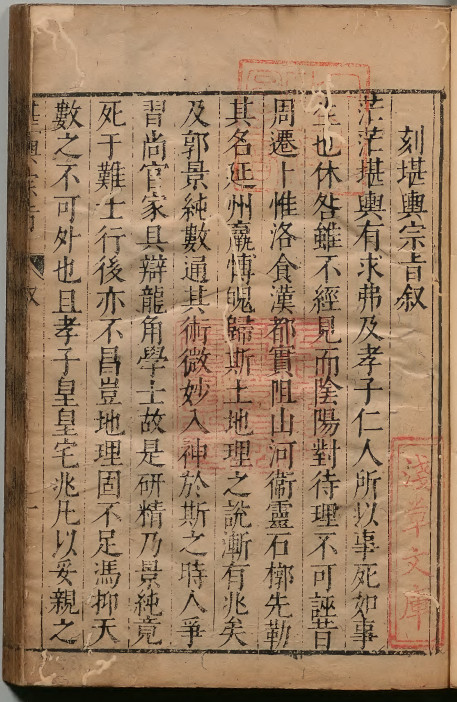 刻堪輿宗旨叙
茫茫堪輿有求弗及孝子仁人所以事死如事
生也休咎雖不經見而陰陽對待理不可誣昔
周遷卜惟洛食漢都實阻山河衞靈石槨先勒
其名延州嬴博魄歸斯土地理之說漸有兆矣
及郭景純數通其術微妙入神於斯之時人爭
習尚官家具辯龍角學士故是研精乃景純竟
死于難士行後亦不昌豈地理固不足馮抑天
數之不可外也且孝子皇皇宅兆凡以妥親之
叙
一
淺草文庫